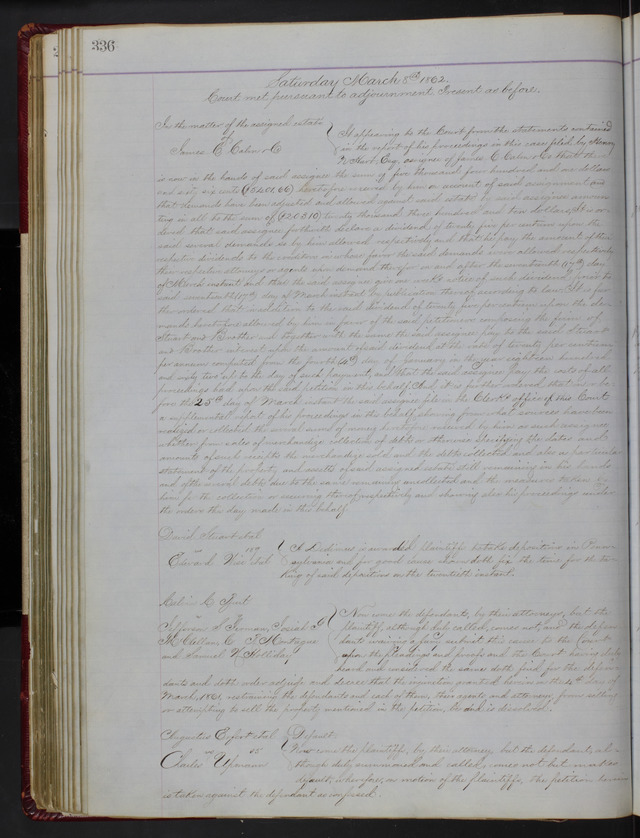 336
Saturday March 8th 1862.
Court met pursuant to adjournment Present as before.
In the matter of the assigned estate
of
James E
It appearing to the Court from the statements contained
in the report of his proceedings in this case filed by Henry
Esq. assignee of James E that there
is now in the hands of said assignee the sum of five thousand four hundred and one dollars
and sixty six cents ($5401.66) heretofore received by him on account of said assignment and
that demands have been adjusted and allowed against said estate by said assignee amount-
ing in all to the sum of ($20310) twenty thousand three hundred and ten dollars, It is or-
dered that said assignee forthwith declare a dividend of twenty five per centum upon the
said several demands so by him allowed respectively and that he pay the amount of the
respective dividends to the creditors in whose favor the said demands were allowed respectively
their respective attorneys or agents when demand therefor on and after the seventeenth (17th) day
of March instant and that the said assignee give one notice of such dividend prior to
said seventeenth (17th) day of March instant by publication thereof according to law. It is fur-
ther ordered that in addition to the said dividend of twenty five per centum upon the de-
mands heretofore allowed by him in favor of the said petitioners composing the firm of
Stuart and Brother and together with the same the said assignee pay to the said Stuart
and Brother interest upon the amount of said dividend at the rate of twenty per centum
per annum computed from the fourth (4th) day of January in the year eighteen hundred
and sixty two up to the day of such payment, and that the said assignee pay the costs of all
proceedings had upon the said petition in this behalf. And it is further ordered that on or be-
fore the 25th day of March instant the said assignee file in the Clerk's office of this Court
a supplemental of his proceedings in this behalf showing from what sources have been
realized or collected the several sums of money heretofore received by him as such assignee
whether from sales of merchandize collection of debts or otherwise specifying the dates and
amounts of such receipts the merchandize sold and the debts collected and also a particular
statement of the property and assets of said assigned estate still remaining in his hands
and of the several debts due to the same remaining uncollected and the measures taken by
him for the collection or securing thereof respectively and showing also his proceedings under
the orders this day made in this behalf.
David Stuart et al
vs 189
Edward et al
A Dedimus is awarded plaintiffs to take depositions in Penn-
sylvania and for good cause shown doth fix the time for the ta-
king of said depositions on the twentieth instant.
C
vs
Jefferson S
C. F. Montague
and Samuel N. Holliday
Now come the defendants, by their attorneys, but the
plaintiff although duly called, comes not, and the defen-
dants waiving a jury submit this cause to the Court
upon the pleadings and proofs and the Court having duly
heard and considered the same doth find for the defen-
dants and doth order adjudge and decree that the injunction granted herein on the 4th day of
March, 1861, restraining the defendants and each of them, their agents, and attorneys, from selling
or attempting to sell the property mentioned in the petition, be and is dissolved.
Augustus et al
vs 15
Charles Upmann
Default
Now come the plaintiffs, by their attorney, but the defendant, al-
though duly summoned and called, comes not but makes
default; wherefore, on motion of the plaintiffs, the petition herein
is taken against the defendant as confessed.